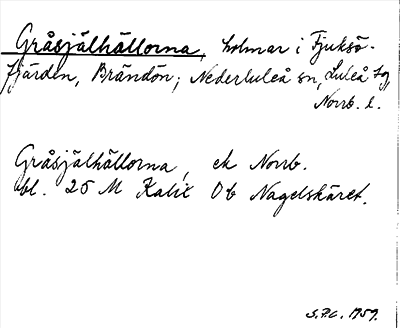 Gråsjälhällorna, holmar i Fjuksö-
fjärden, Brändön; Nederluleå sn, Luleå tg,
Norrb. l.
Gråsjälhällorna, ek Norrb.
bl. 25 M Kalix Ob Nagelskäret.
S.F.C. 1959.